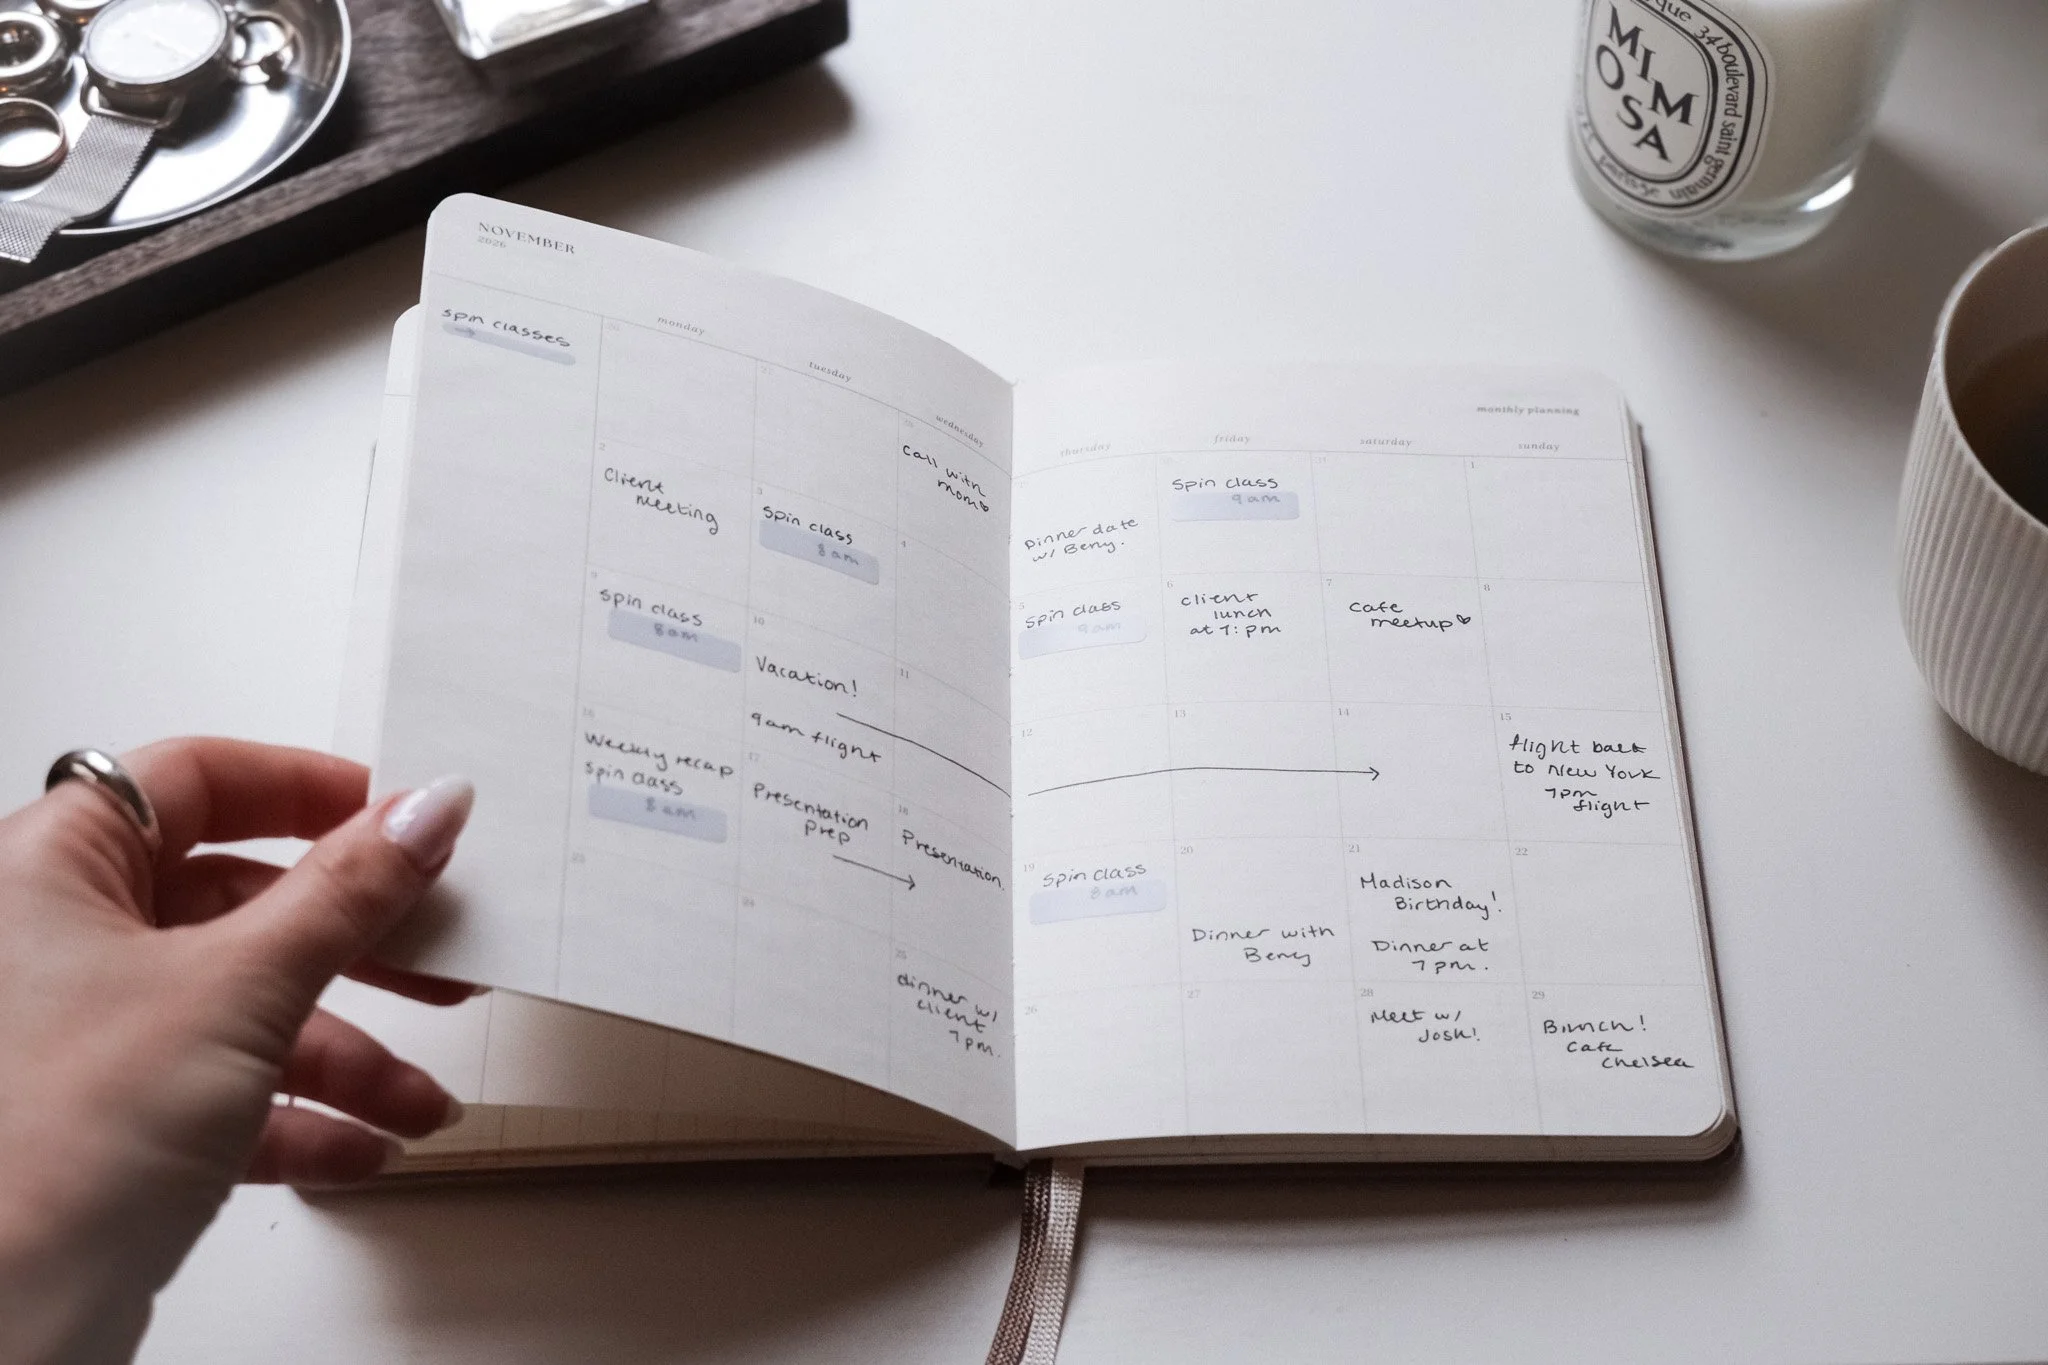 NOVEMBER
2026
spin classes
monday
tuesday
wednesday
Call with
mom♥
2
Client
meeting
3
Spin class
8am
4
9
Spin class
8am
10
Vacation!
9am flight
11
16
Weekly recap
Spin class
8am
17
Presentation
Prep
18
Presentation.
23
24
25
dinner w/
client
7pm.
monthly planning
thursday
friday
saturday
sunday
Dinner date
w/
Spin class
9am
1
5
Spin class
9am
6
client
lunch
at 1: pm
7
Cafe
meetup♥
8
12
13
14
15
flight back
to New York
7pm
flight
19
Spin class
8am
20
Dinner with
21
Madison
Birthday!
Dinner at
7pm.
22
26
27
28
Meet w/
Josh!
29
Brunch!
Cafe
Chelsea
MIMOSA
34 boulevard saint germain